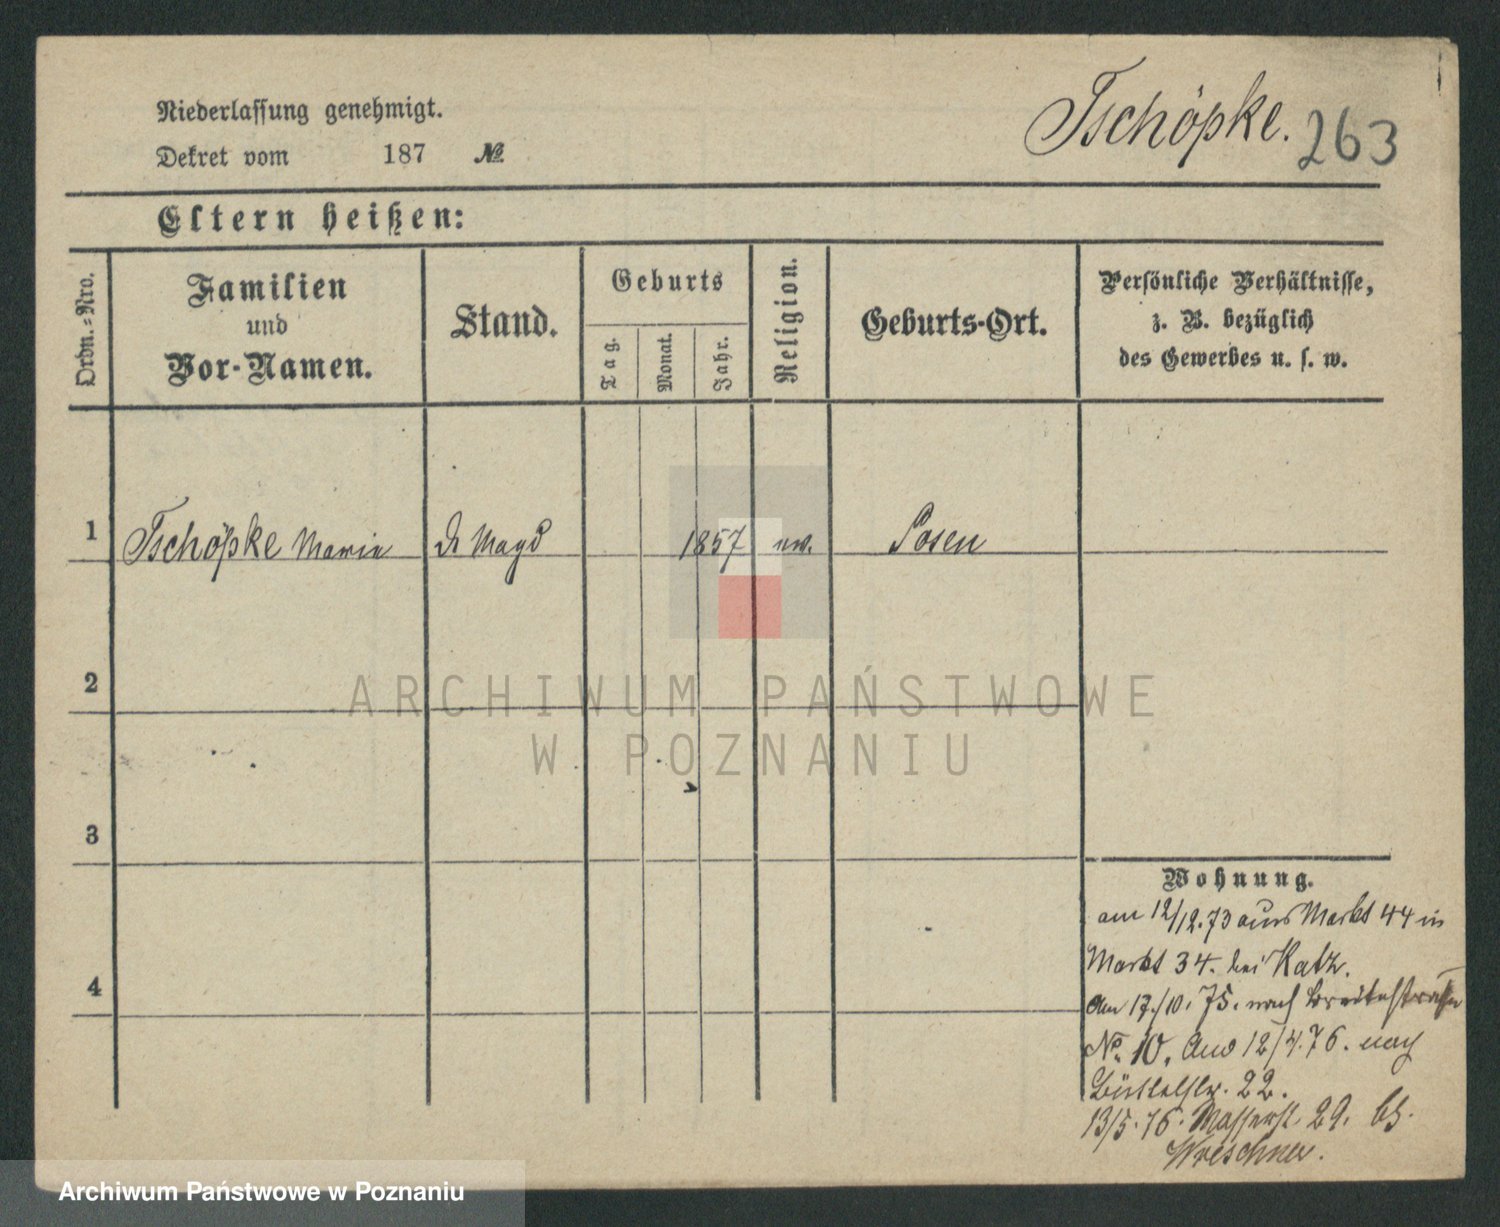 Niederlassung genehmigt.
Dekret vom 187 №
Tschöpke. 263
Eltern heißen:
Ordn.=Nro.
Familien
und
Vor-Namen.
Stand.
Geburts
Tag.
Monat.
Jahr.
Religion.
Geburts-Ort.
Persönliche Verhältnisse,
z. B. bezüglich
des Gewerbes u. s. w.
1 Tschöpke Marie Magd 1857 Posen
2
3
4
ARCHIWUM PAŃSTWOWE
W POZNANIU
Wohnung.
am 12/12.73 aus Markt 44 in
Markt 34. bei Katz.
Am 17/10. 75. nach Breitestraße
No. 10. 12/4.76. nach
Büttelstr. 22.
13/5.76. 29. bei
Wreschner.
Archiwum Państwowe w Poznaniu